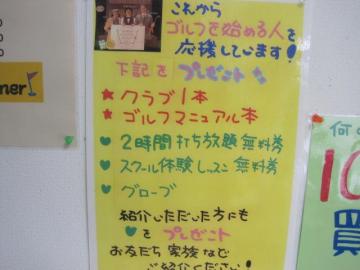 これから
ゴルフを始める人を
応援しています!
下記をプレゼント
★クラブ1本
★ゴルフマニュアル本
♥2時間打ち放題無料券
♥スクール体験レッスン無料券
♥グローブ
紹介いただいた方にも
♥をプレゼント
お友だち家族など
ご紹介ください!
ner
何
10
買